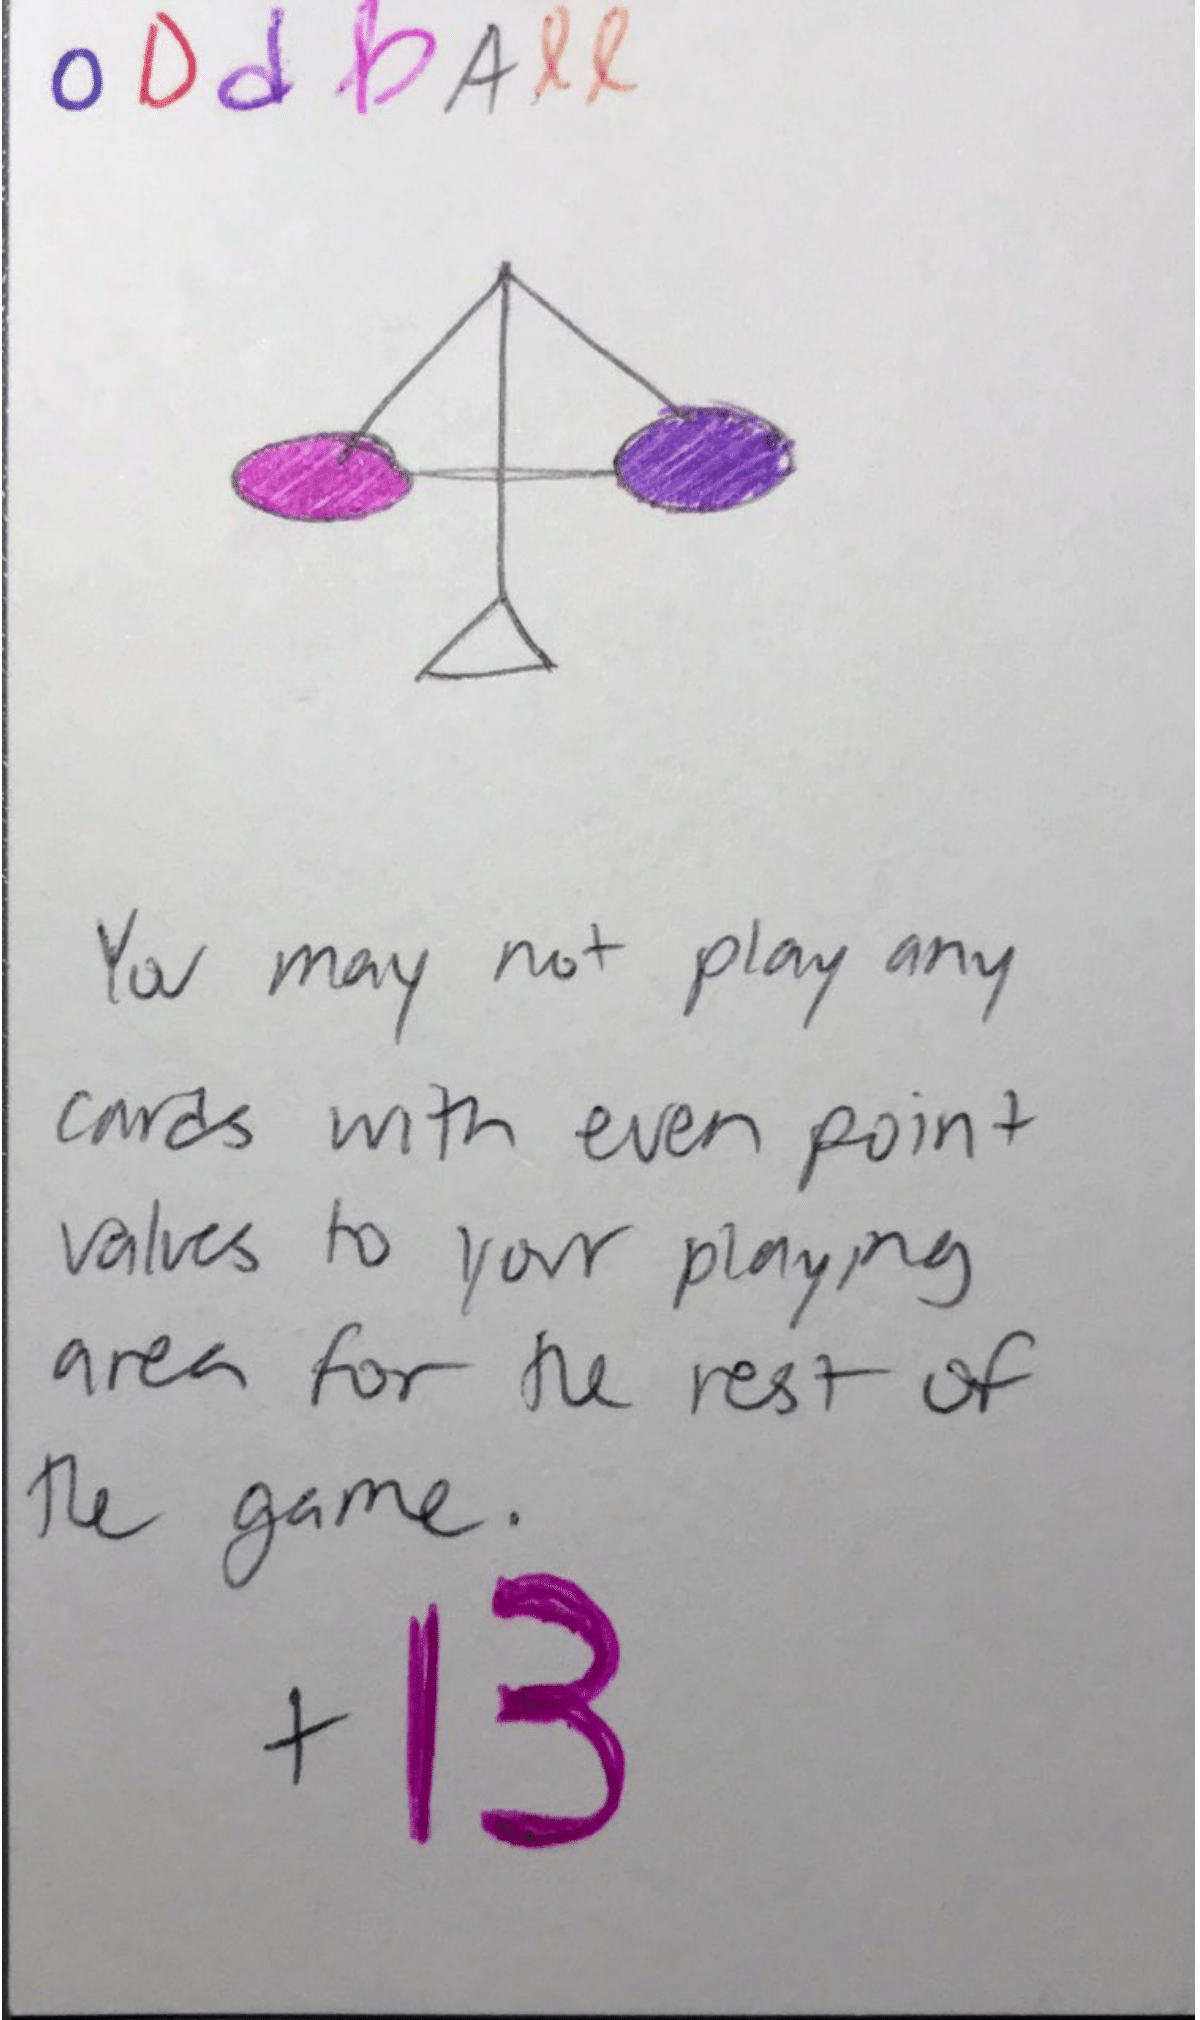 oDdbAll
You may not play any
cards with even point
values to your playing
area for the rest of
the game.
+13